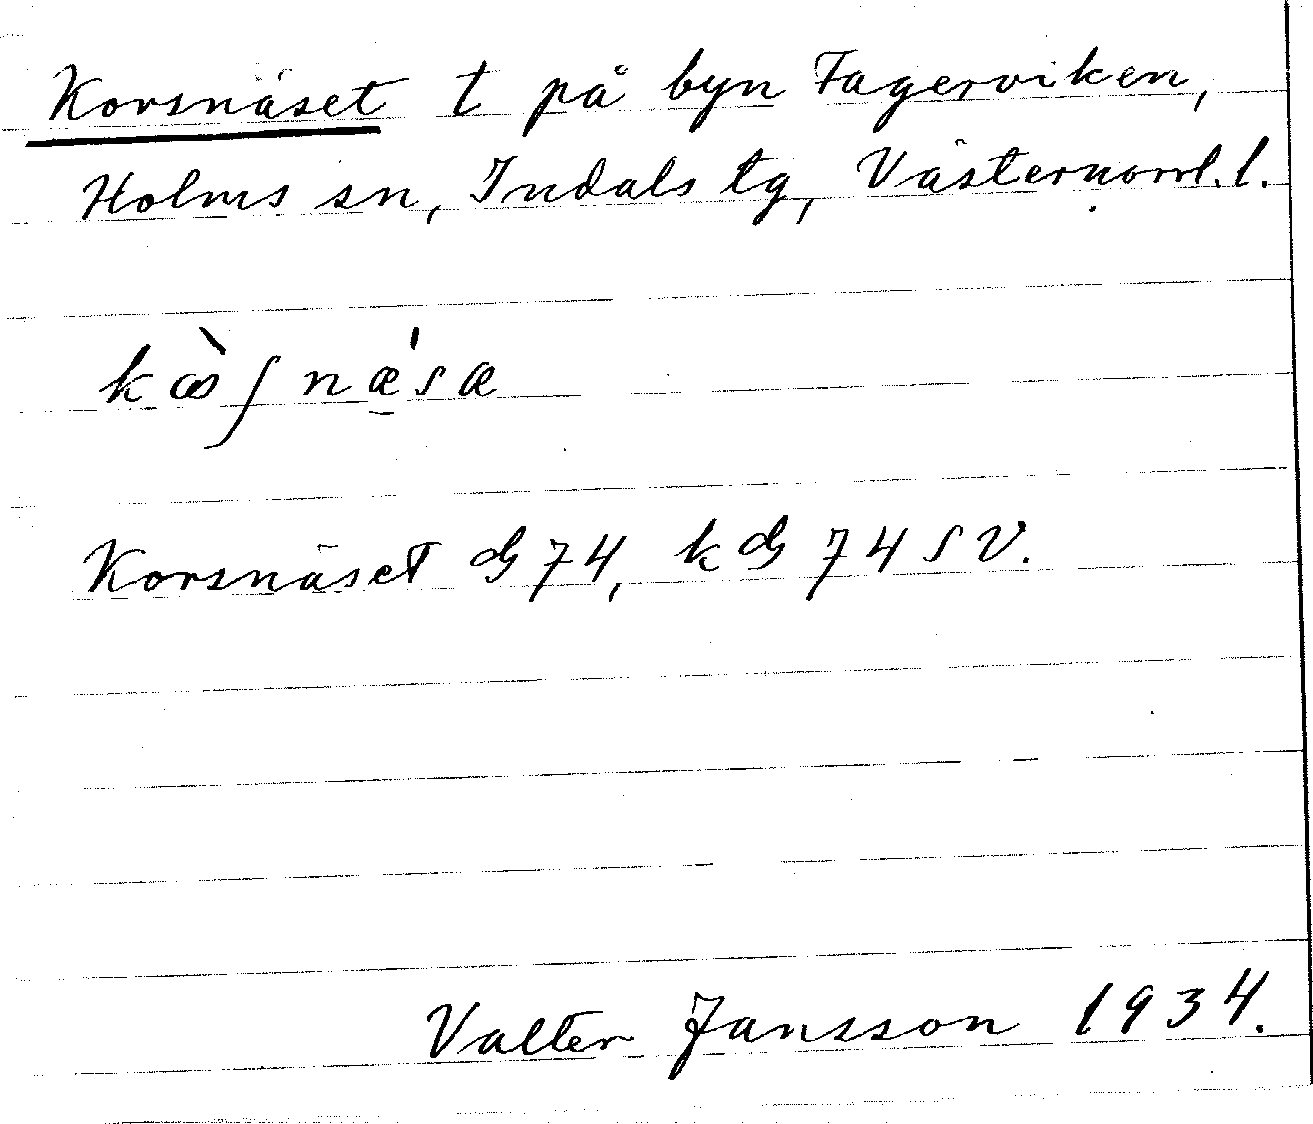 Korsnäset t på byn Fagerviken,
Holms sn, Indals tg, Västernorrl. l.
kꝏ̀ʃnæ̠ˈsæ
Korsnäset G 74, k G 74 SV.
Valter Jansson 1934.